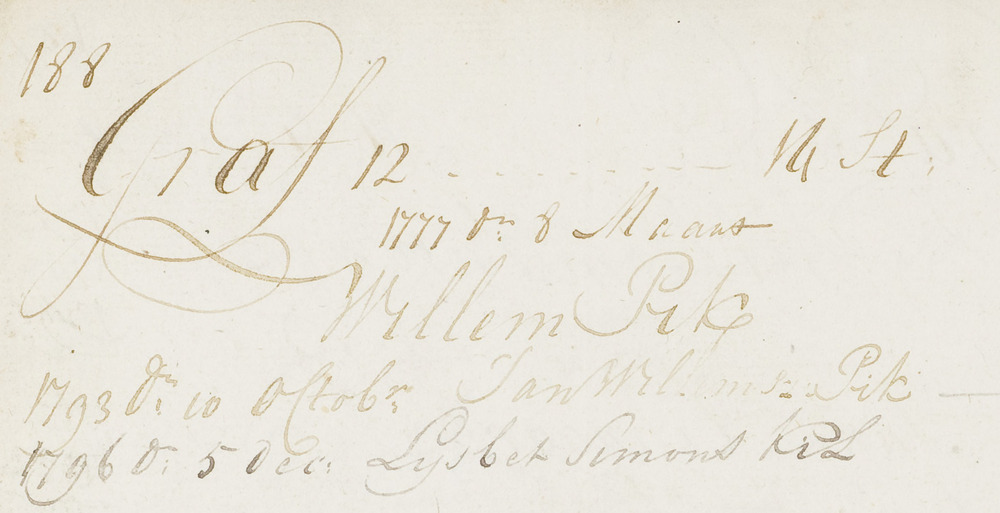 188
Graf 12 - - - - - - - - 14 St:
1777 dn: 8 Maart
Willem Pik
1793 Dn: 10 Octobr: Jan Willemsz: Pik —
1796 D: 5 Dec: Lysbet Simons